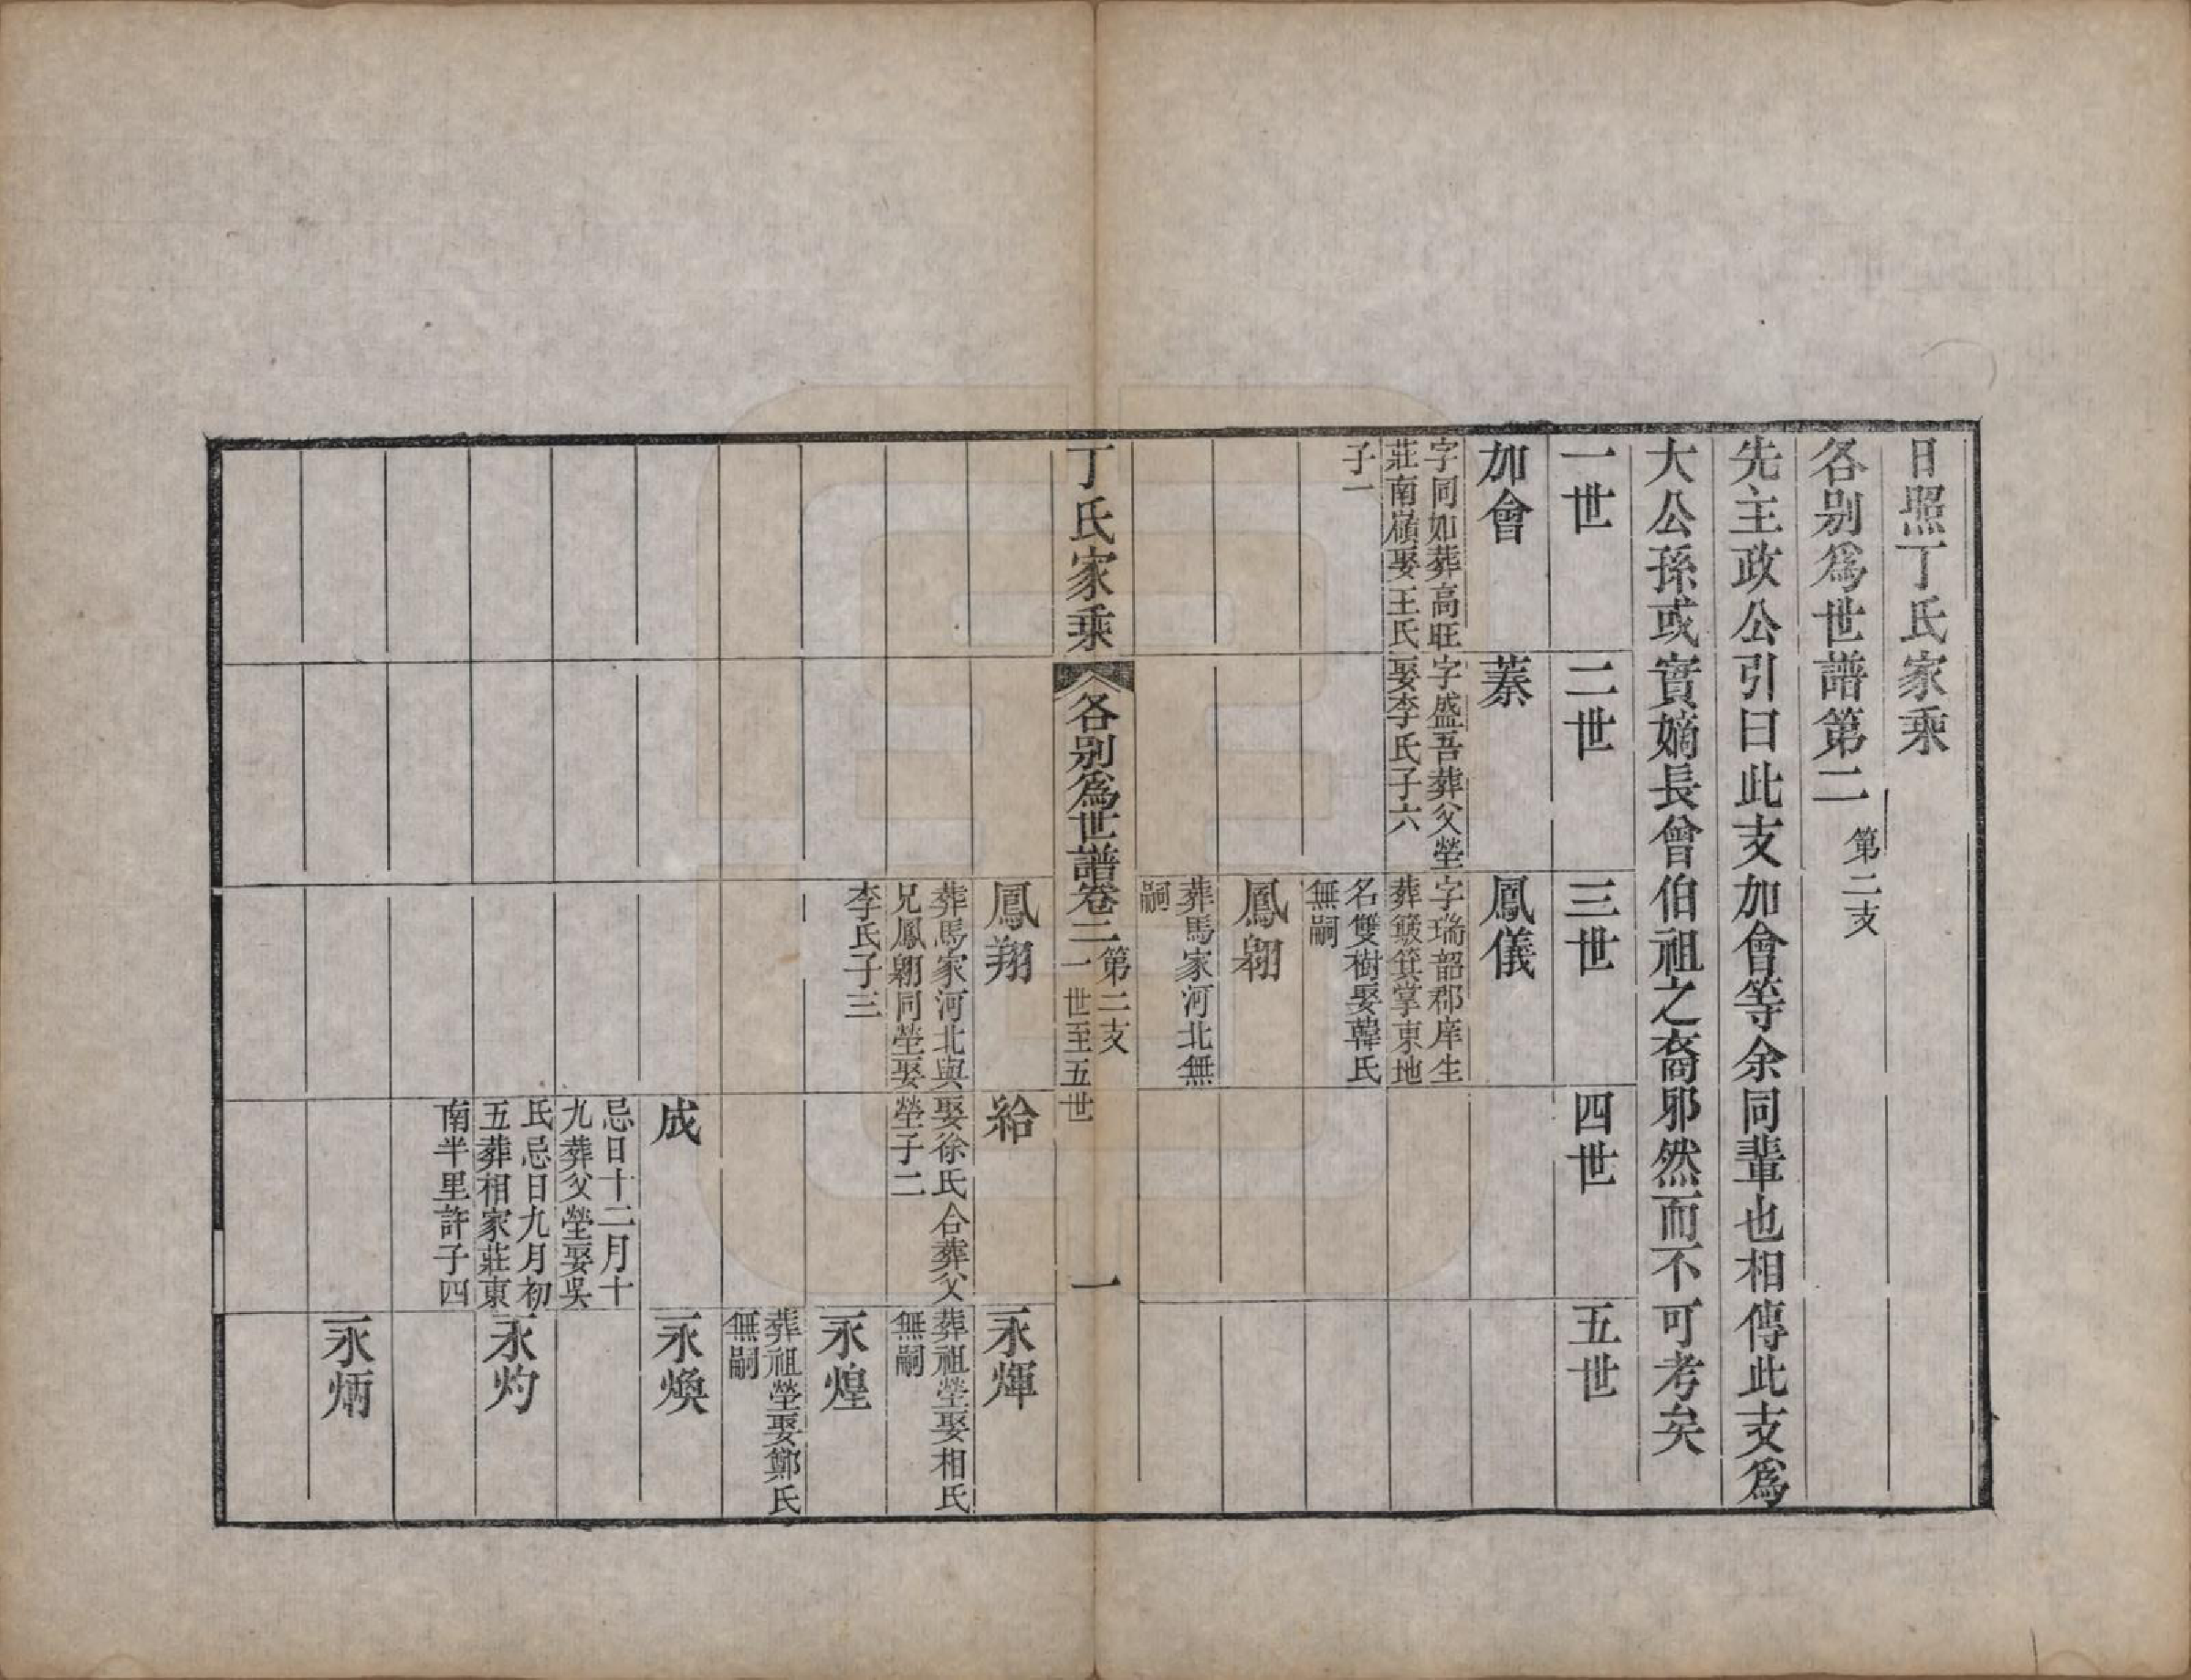 日照丁氏家乘
各別爲世譜第二 第二支
先主政公引曰此支加會等余同輩也相傳此支爲
大公孫或實嫡長曾伯祖之裔邪然而不可考矣
一世 二世 三世 四世 五世
加會
字同如葬高旺
莊南嶺娶王氏
子一
蓁
字盛吾葬父塋
娶李氏子六
鳳儀
字瑞韶郡庠生
葬簸箕掌東地
名雙樹娶韓氏
無嗣
鳳翱
葬馬家河北無
嗣
丁氏家乘 各別爲世譜卷二 第二支 一世至五世 一
鳳翔
葬馬家河北與
兄鳳翱同塋娶
李氏子三
給
娶徐氏合葬父
塋子二
永煇
葬祖塋娶相氏
無嗣
永煌
葬祖塋娶鄭氏
無嗣
成
忌日十二月十
九葬父塋娶吳
氏忌日九月初
五葬相家莊東
南半里許子四
永煥
永灼
永炳